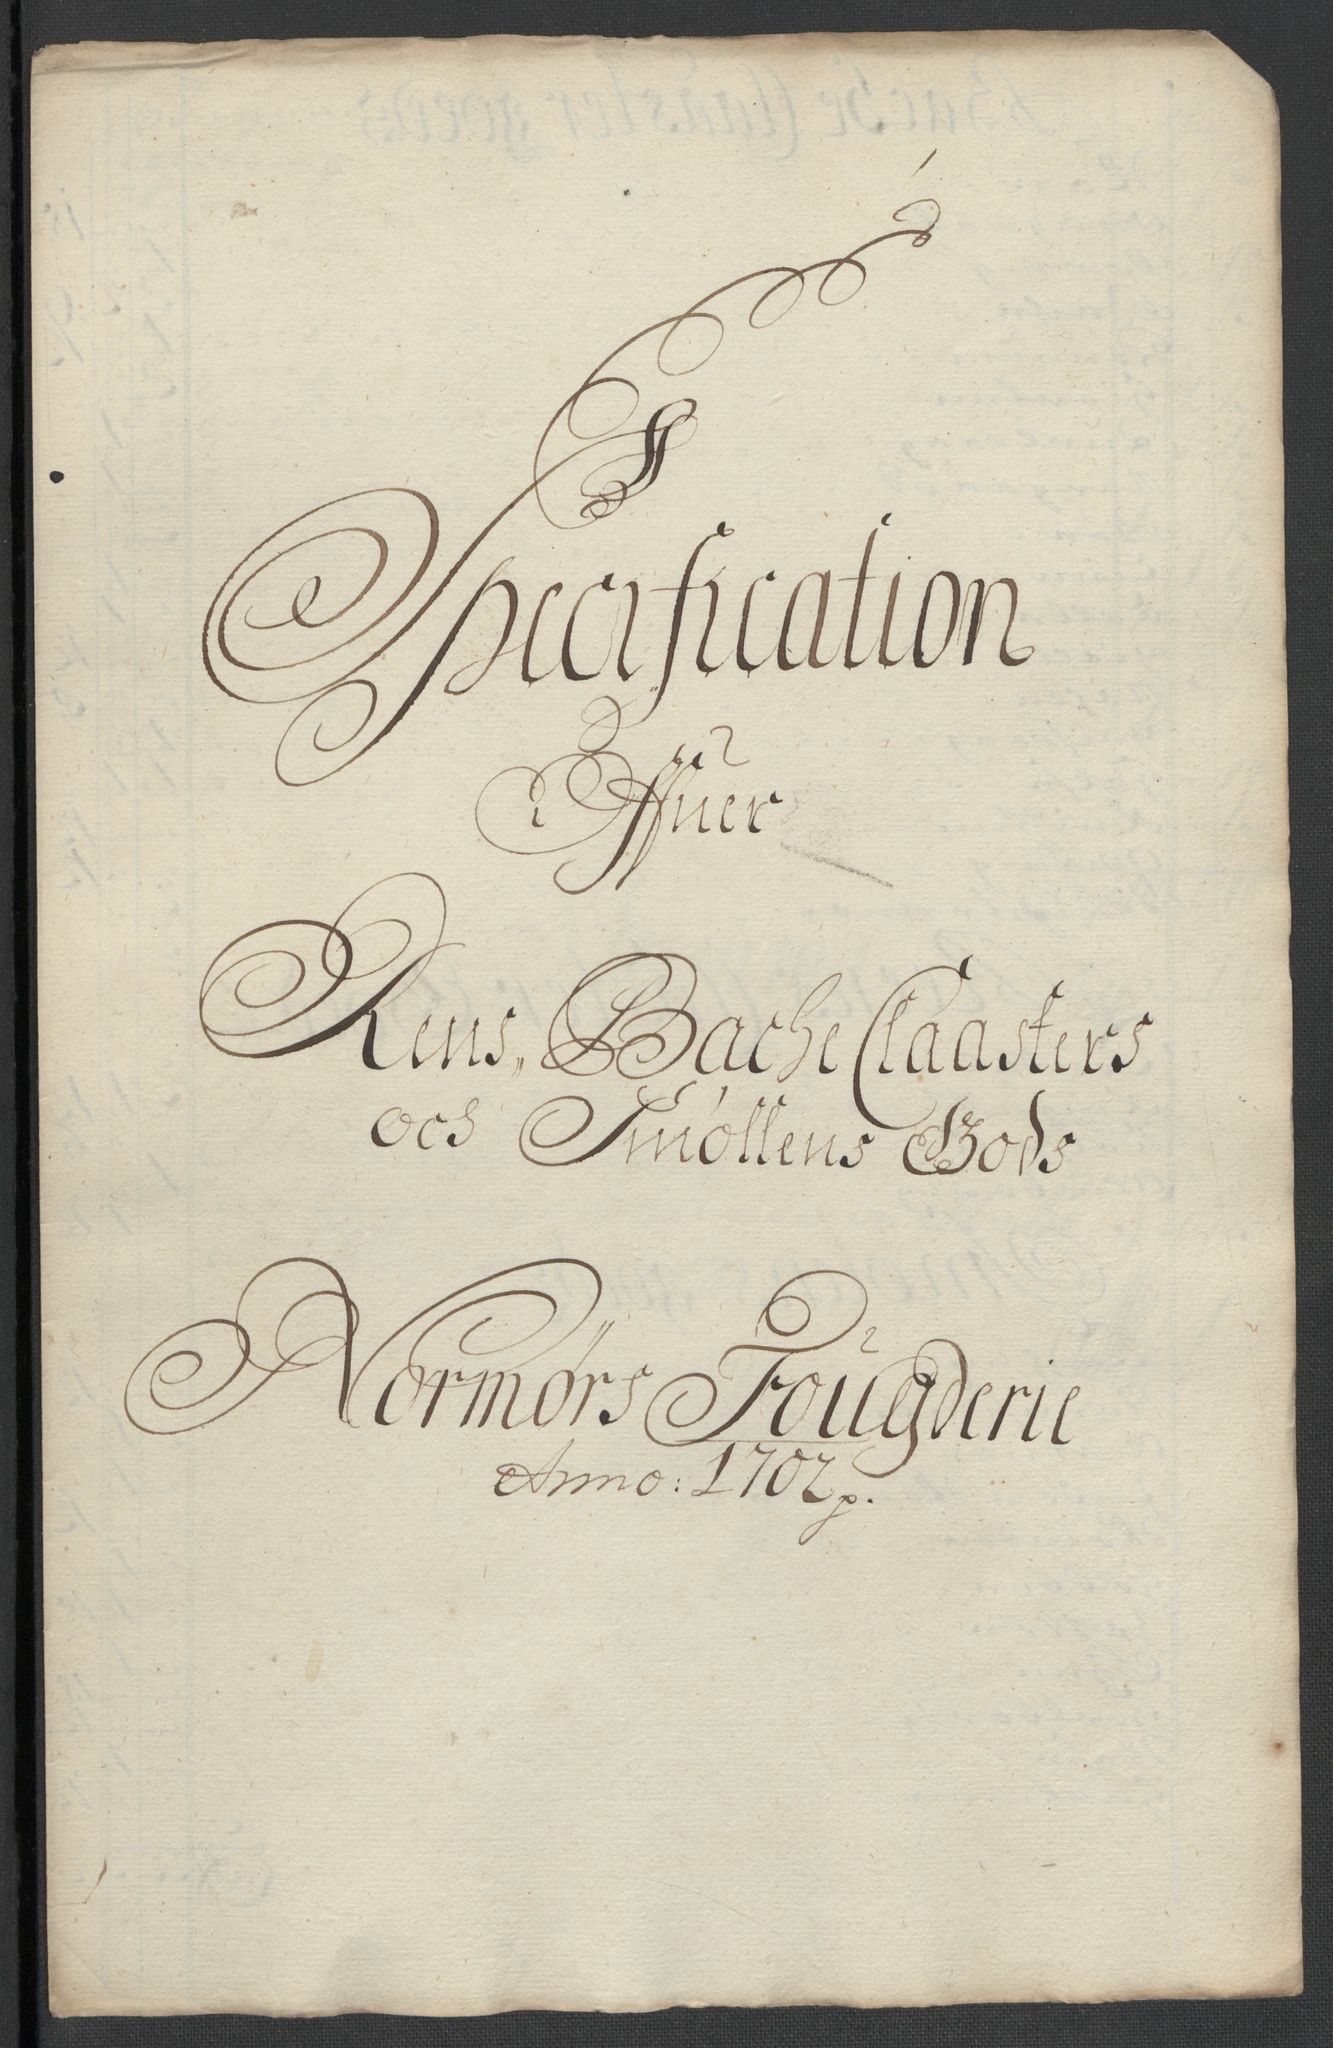 Specification
Offuer
Rens, Bache Claasters
och Smöllens Gods
Normørs Fougderie
Anno: 1702